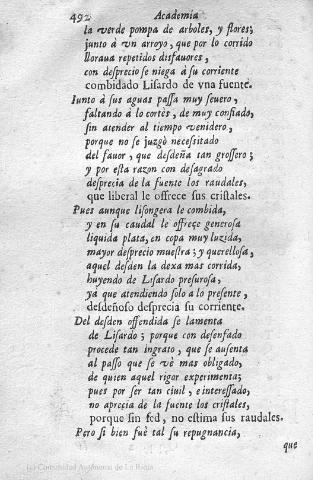 492 Academia
la verde pompa de arboles, y flores;
junto à vn arroyo, que por lo corrido
lloraua repetidos disfauores,
con desprecio se niega à su corriente
combidado Lisardo de vna fuente.
Iunto à sus aguas passa muy seuero,
faltando à lo cortès, de muy confiado,
sin atender al tiempo venidero,
porque no se juzgò necessitado
del fauor, que desdeña tan grossero;
y por esta razon con desagrado
desprecia de la fuente los raudales,
que liberal le offrece sus cristales.
Pues aunque lisongera le combida,
y en su caudal le offreçe generosa
liquida plata, en copa muy luzida,
mayor desprecio muestra; y querellosa,
aquel desden la dexa mas corrida,
huyendo de Lisardo presurosa,
ya que atendiendo solo a lo presente,
desdeñoso desprecia su corriente.
Del desden offendida se lamenta
de Lisardo; porque con desenfado
procede tan ingrato, que se ausenta
al passo que se vè mas obligado,
de quien aquel rigor experimenta;
pues por ser tan ciuil, e interessado,
no aprecia de la fuente los cristales,
porque sin sed, no estima sus raudales.
Pero si bien fuè tal su repugnancia,
que
(c) Comunidad Autónoma de La Rioja